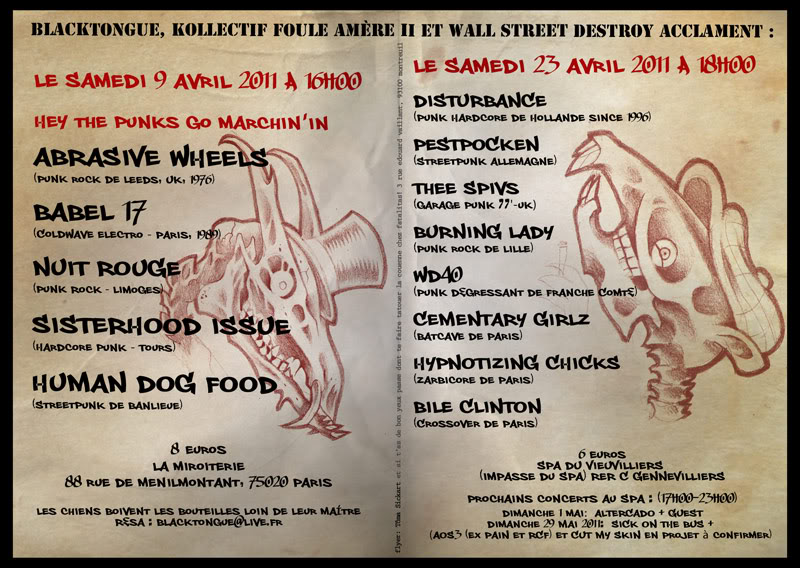 BLACKTONGUE, KOLLECTIF FOULE AMÈRE II ET WALL STREET DESTROY ACCLAMENT :
LE SAMEDI 9 AVRIL 2011 A 16H00
HEY THE PUNKS GO MARCHIN'IN
ABRASIVE WHEELS
(PUNK ROCK DE LEEDS, UK, 1976)
BABEL 17
(COLDWAVE ELECTRO - PARIS, 1989)
NUIT ROUGE
(PUNK ROCK - LIMOGES)
SISTERHOOD ISSUE
(HARDCORE PUNK - TOURS)
HUMAN DOG FOOD
(STREETPUNK DE BANLIEUE)
8 EUROS
LA MIROITERIE
88 RUE DE MENILMONTANT, 75020 PARIS
LES CHIENS BOIVENT LES BOUTEILLES LOIN DE LEUR MAÎTRE
RÉSA : BLACKTONGUE@LIVE.FR
flyer: Thom Sickart et si t'as de bon yeux passe donc te faire tatouer la couenne chez fatalitas! 3 rue edouard vaillant, 93100 montreuil
LE SAMEDI 23 AVRIL 2011 A 18H00
DISTURBANCE
(PUNK HARDCORE DE HOLLANDE SINCE 1996)
PESTPOCKEN
(STREETPUNK ALLEMAGNE)
THEE SPIVS
(GARAGE PUNK 77'-UK)
BURNING LADY
(PUNK ROCK DE LILLE)
WD40
(PUNK DÉGRESSANT DE FRANCHE COMTÉ)
CEMENTARY GIRLZ
(BATCAVE DE PARIS)
HYPNOTIZING CHICKS
(ZARBICORE DE PARIS)
BILE CLINTON
(CROSSOVER DE PARIS)
6 EUROS
SPA DU VIEUVILLIERS
(IMPASSE DU SPA) RER C GENNEVILLIERS
PROCHAINS CONCERTS AU SPA : (17H00-23H00)
DIMANCHE 1 MAI: ALTERCADO + GUEST
DIMANCHE 29 MAI 2011: SICK ON THE BUS +
(AOS3 (EX PAIN ET RCF) ET CUT MY SKIN EN PROJET À CONFIRMER)